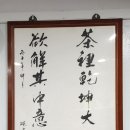 茶裡乾坤大
欲解其中意